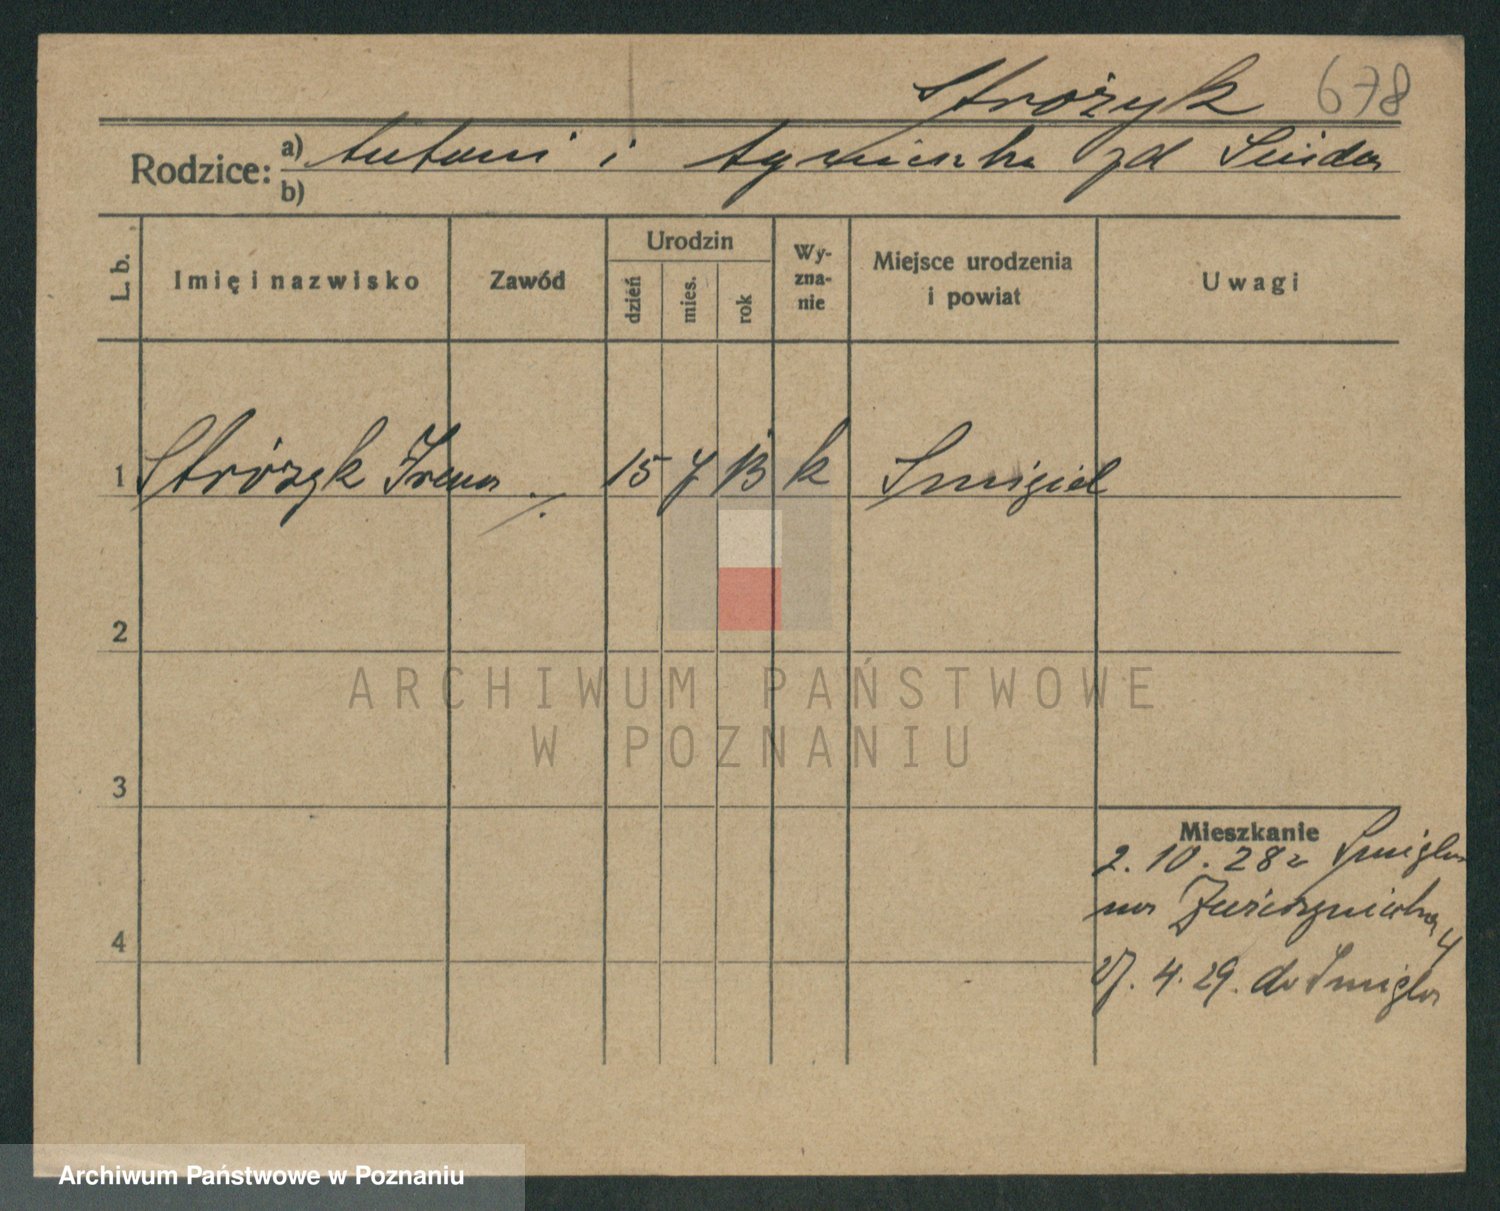 Stróżyk 678
Rodzice: a) Antoni i Agnieszka zd
b)
L. b.
Imię i nazwisko
Zawód
Urodzin
dzień
mies.
rok
Wy-
zna-
nie
Miejsce urodzenia
i powiat
Uwagi
1 Stróżyk Irena 15 7 13 k Śmigiel
2
ARCHIWUM PAŃSTWOWE
W POZNANIU
3
Mieszkanie
2. 10. 28 z Śmigla
na 4
4
27. 4. 29. do Śmigla
Archiwum Państwowe w Poznaniu